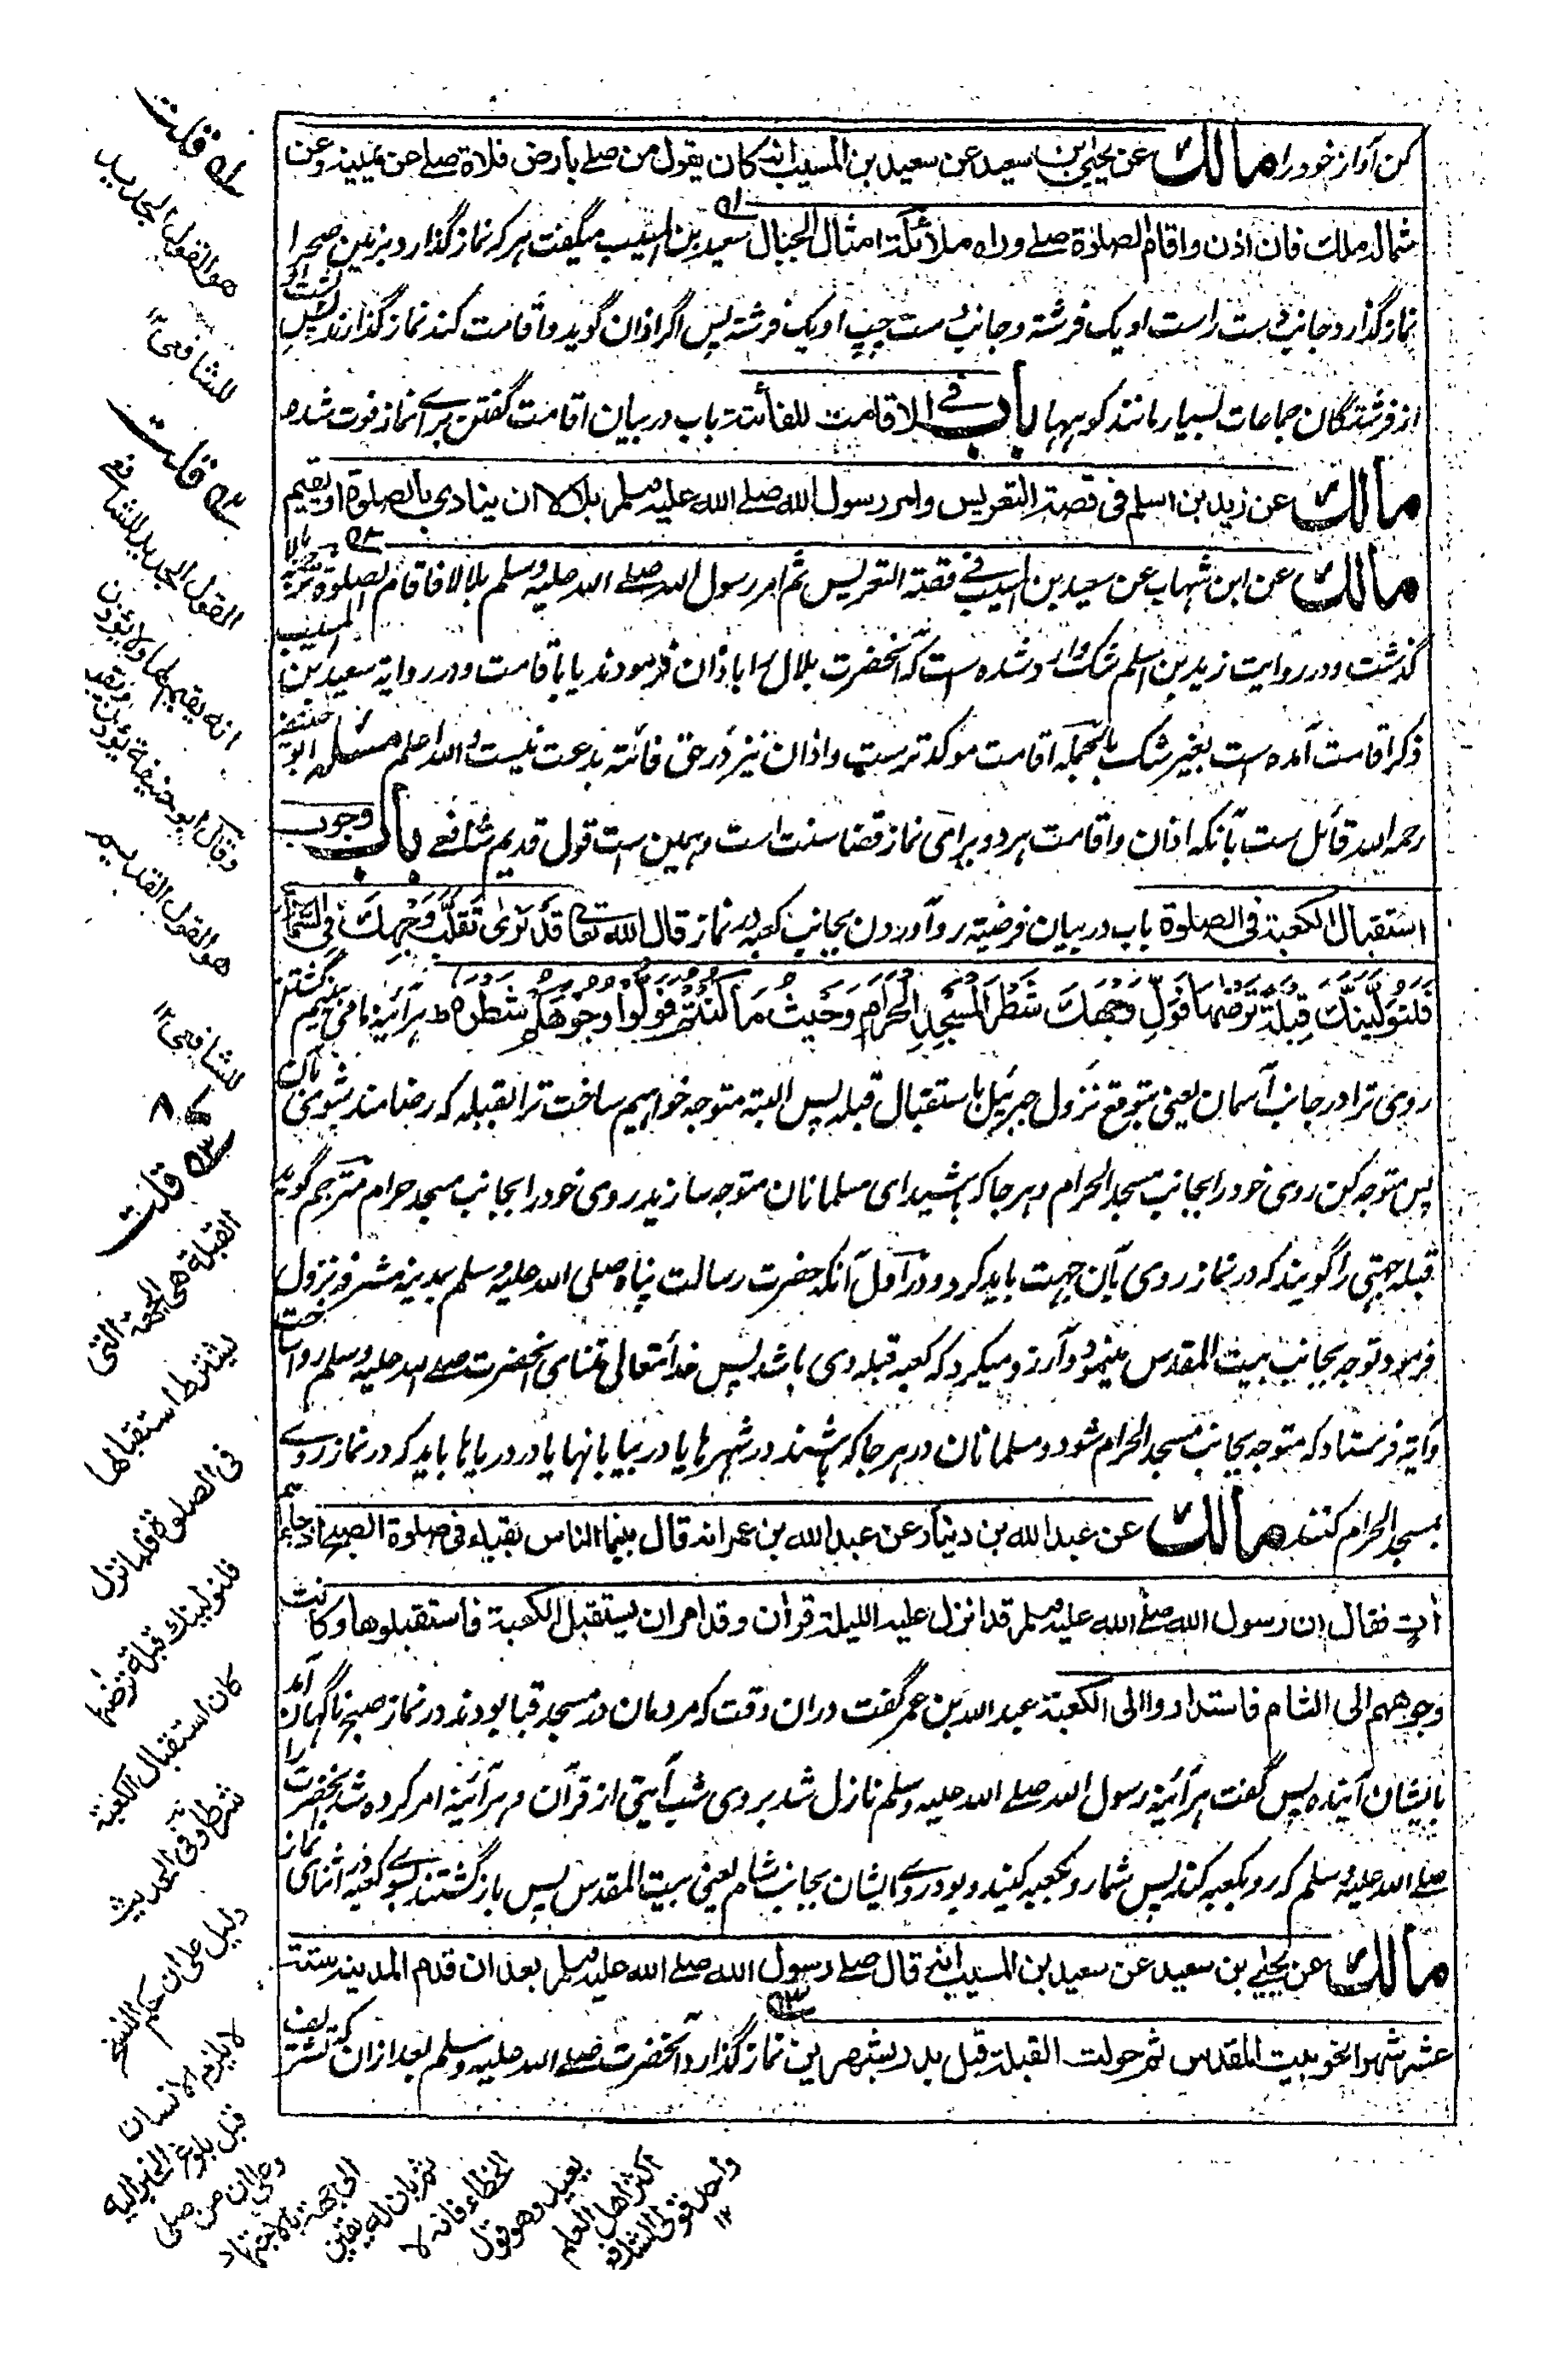 کن آواز خود را مالك عن يحيى ابن سعيد عن سعيد بن المسيب انه كان يقول من صلے بارض فلاة صلے عن يمينه وعن
شماله ملك فان اذن واقام الصلوٰة صلے وراه ملائكة امثال الجبال سعید بن المسیب میگفت ہر که نماز گذارد بزمین صحرا
نماز گذارد جانب دست راست او یک فرشته و جانب دست چپ او یک فرشته پس اگر اذان گوید و اقامت کند نماز گذارند پس پشت او
از فرشتگان جماعات بسیار مانند کوہہا باب فے الاقامت للفائتة باب در بیان اقامت گفتن برای نماز فوت شده
مالك عن زيد بن اسلم فى قصة التعريس وامر رسول الله صلے الله عليه وسلم بلالا ان ينادى بالصلوة او يقيم
مالك عن ابن شهاب عن سعيد بن المسيب فے قصة التعريس ثم امر رسول الله صلے الله عليه وسلم بلالا فاقام الصلوة ترجمه بالا
گذشت و در روایت زید بن اسلم شک وارد شده ست که آنحضرت بلال را باذان فرمودند یا باقامت و در روایة سعید بن المسیب
ذکر اقامت آمده است بغیر شک بالجمله اقامت موکد ترست و اذان نیز در حق فائته بدعت نیست والله اعلم مسئله ابو حنیفه
رحمه الله قائل ست بآنکه اذان و اقامت ہر دو برای نماز قضا سنت است و ہمین ست قول قدیم شافعے باب وجوب
استقبال الكعبة فى الصلوة باب در بیان فرضیة رو آوردن بجانب کعبه در نماز قال الله تعالے قَدْ نَرٰى تَقَلُّبَ وَجْهِكَ فِى السَّمَآءِ
فَلَنُوَلِّيَنَّكَ قِبْلَةً تَرْضٰهَا فَوَلِّ وَجْهَكَ شَطْرَ الْمَسْجِدِ الْحَرَامِ وَحَيْثُ مَا كُنْتُمْ فَوَلُّوْا وُجُوْهَكُمْ شَطْرَهٗ ہر آئینه ما می بینیم گشتن
روی ترا در جانب آسمان یعنی بتوقع نزول جبرئیل باستقبال قبله پس البته متوجه خواہیم ساخت ترا بقبله که رضامند شوی بآن
پس متوجه کن روی خود را بجانب مسجد الحرام و ہر جا که باشید ای مسلمانان متوجه سازید روی خود را بجانب مسجد حرام مترجم گوید
قبله جہتی را گویند که در نماز روی بآن جہت باید کرد و در اول آنکه حضرت رسالت پناه صلی الله علیه وسلم بمدینه مشرفه نزول
فرمود توجه بجانب بیت المقدس مینمود و آرزو میکرد که کعبه قبله وی باشد پس خدایتعالی تمنای آنحضرت صلے الله علیه وسلم روا ساخت
و آیة فرستاد که متوجه بجانب مسجد الحرام شود و مسلمانان در ہر جا که باشند در شہر ہا یا در بیابانہا یا در دریاہا باید که در نماز روے
بمسجد الحرام کنند مالك عن عبدالله بن دينار عن عبدالله بن عمر انه قال بينما الناس بقباء فى صلوة الصبح اذ جاءهم
اٰتٍ فقال ان رسول الله صلے الله عليه وسلم قد انزل عليه الليلة قراٰن وقد امر ان يستقبل الكعبة فاستقبلوها وكانت
وجوههم الى الشام فاستداروا الى الكعبة عبدالله بن عمر گفت دران وقت که مردمان در مسجد قبا بودند در نماز صبح ناگہان آمد
بایشان آینده پس گفت ہر آئینه رسول الله صلے الله علیه وسلم نازل شد بر وی شب آیتی از قرآن و ہر آئینه امر کرده شد آنحضرت را
صلے الله علیه وسلم که رو بکعبه کند پس شما رو بکعبه کنید و بود روے ایشان بجانب شام یعنی بیت المقدس پس باز گشتند بسوے کعبه در اثنای نماز
مالك عن يحيے بن سعيد عن سعيد بن المسيب انه قال صلے رسول الله صلے الله عليه وسلم بعد ان قدم المدينة ستة
عشر شهرا نحو بيت المقدس ثم حولت القبلة قبل بدر بشهرين نماز گذارد آنحضرت صلے الله علیه وسلم بعد ازان که تشریف
قلت
هو القول الجديد
للشافعى ۱۲
قلت
القول الجديد للشافعى
انه يقيم لها ولا يؤذن
وقال ابو حنيفة يؤذن ويقيم
هو القول القديم
للشافعى ۱۲
قلت
القبلة هى الجهة التى
يشترط استقبالها
فى الصلوة فلما نزل
فلنولينك قبلة ترضها
كان استقبال الكعبة
شرطا وفى الحديث
دليل على ان حكم النسخ
لا يلزم الانسان
قبل بلوغ الخبر اليه
وعلى ان من صلى
الى جهة بالاجتهاد
ثم بان له يقين
الخطاء فانه لا
يعيد وهو قول
اكثر اهل العلم
واحد قولى الشافعى
۱۲